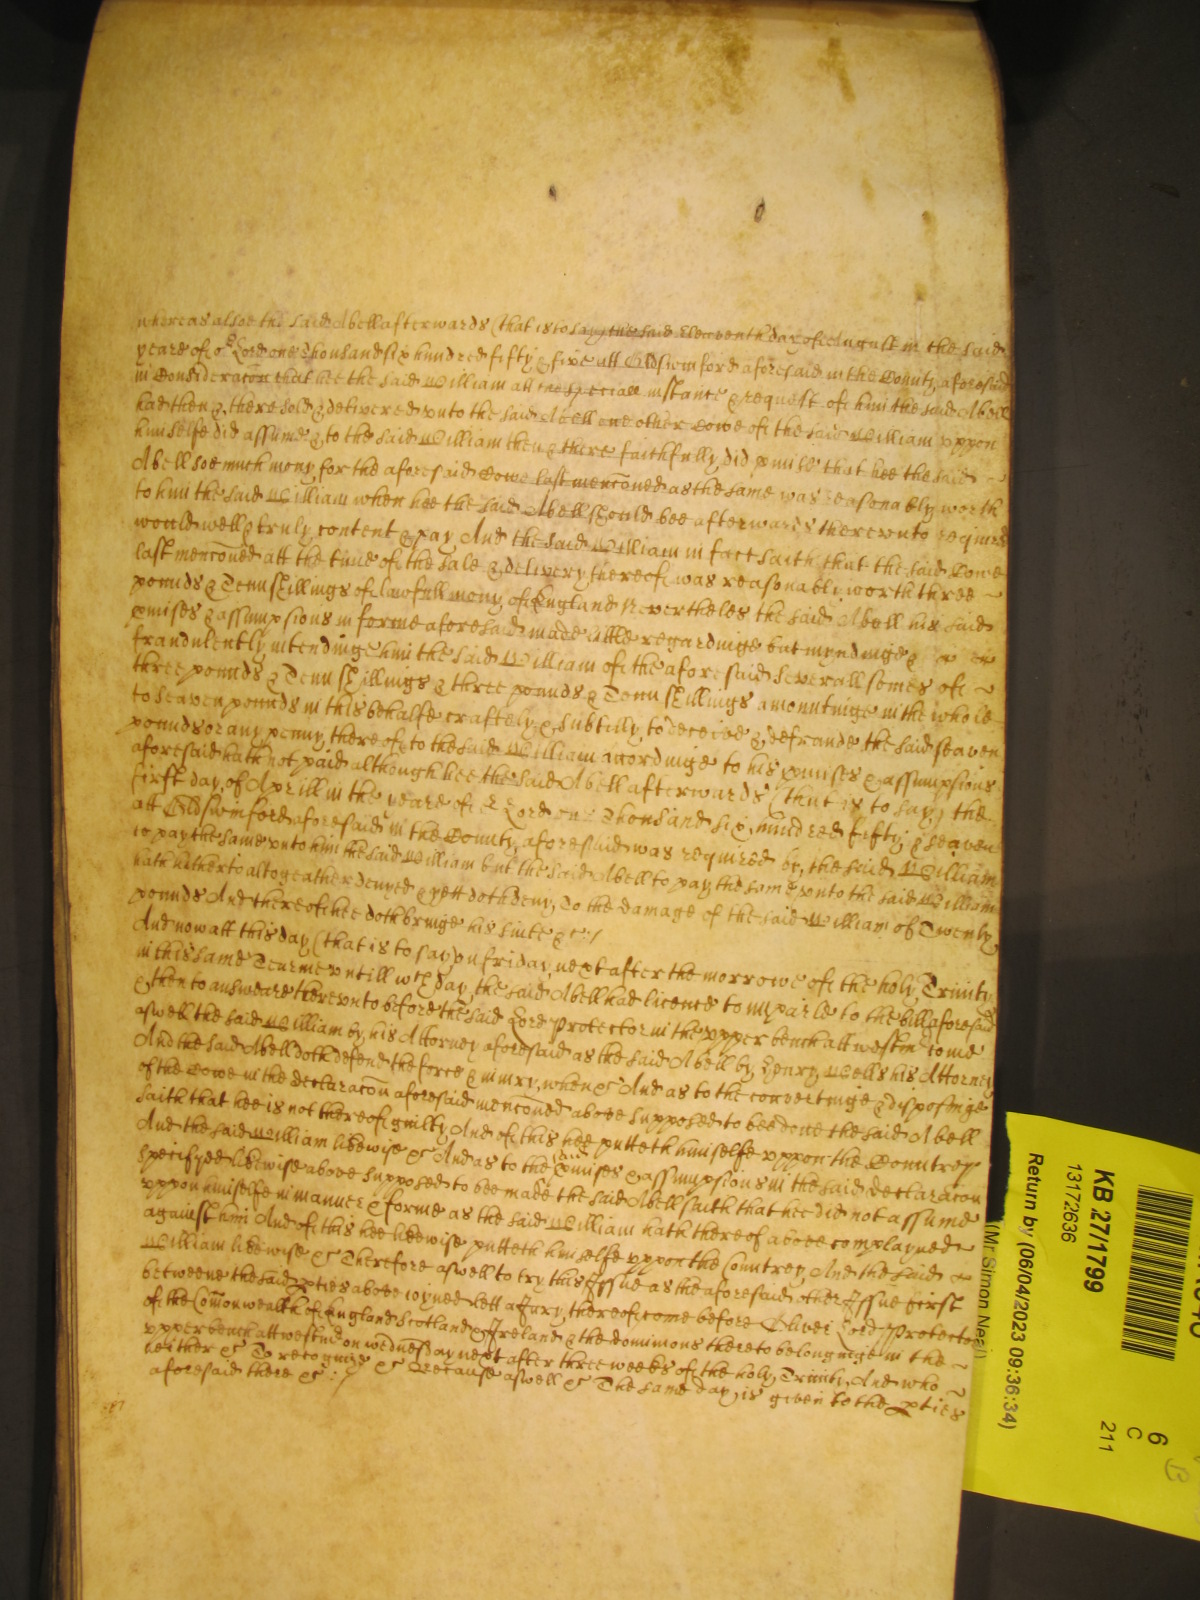 whereas alsoe the said Abell afterwards (that is to say) the said Eleaventh day of August in the said
yeare of or Lord one Thousand six hundred fifty & five att Oldswinford aforesaid in the County aforesaid
in Consideracon that hee the said William att the speciall instance & request of him the said Abell
had then & there sold & delivered unto the said Abell one other Cowe of the said William uppon
himselfe did assume & to the said William then & there faithfully did pmise that hee the said
Abell soe much mony for the aforesaid Cowe last menconed as the same was reasonably worth
to him the said William when hee the said Abell should bee afterwards thereunto required
would well & truly content & pay And the said William in fact saith that the said Cowe
last menconed att the time of the sale & delivery thereof was reasonably worth three
pounds & Tenn shillings of lawfull mony of England Nevertheles the said Abell his said
pmises & assumpsions in forme aforesaid made little regardinge but myndinge &
fraudulently intendinge him the said William of the aforesaid severall somes of
three pounds & Tenn shillings & three pounds & Tenn shillings amountinge in the whole
to seaven pounds in this behalfe craftely & subtilly to deceive & defraude the said seaven
pounds or any penny thereof to the said William accordinge to his pmises & assumpsions
aforesaid hath not paid although hee the said Abell afterwards (that is to say) the
first day of Aprill in the yeare of or Lord one Thousand six hundred fifty & seaven
att Oldswinford aforesaid in the County aforesaid was required by the said William
to pay the same unto him the said William but the said Abell to pay the same unto the said William
hath hitherto altogeather denyed & yett doth deny To the damage of the said William of Twenty
pounds And thereof hee doth bringe his suite &c:/
And now att this day (that is to say) on friday next after the morrowe of the holy Trinity
in this same Tearme untill wch day the said Abell had licence to imparle to the bill aforesaid
& then to answeare thereunto before the said Lord Protector in the upper bench att westm come
aswell the said William by his Attorney aforesaid as the said Abell by Henry Wells his Attorney
And the said Abell doth defend the force & iniury when &c And as to the convertinge & disposinge
of the Cowe in the declaracon aforesaid menconed above supposed to bee done the said Abell
saith that hee is not thereof guilty And of this hee putteth himselfe uppon the Countrey
And the said William likewise &c And as to the said pmises & assumpsions in the said declaracon
specifyed likewise above supposed to bee made the said Abell saith that hee did not assume
uppon himselfe in manner & forme as the said William hath thereof above complayned
against him And of this hee likewise putteth himselfe uppon the Countrey And the said
William likewise &c Therefore aswell to try this Issue as the aforesaid other Issue first
betweene the said pties above ioyned lett a Jury thereof come before Oliver Lord Protector
of the Comonwealth of England Scotland & Ireland & the dominions thereto belonginge in the
upper bench att westm on wednesday next after three weekes of the holy Trinity And who
neither &c To recognize &c Because aswell &c The same day is given to the pties
aforesaid there &c :/
KB 27/1799
13172636
Return by (06/04/2023 09:36:34)
6
C
211